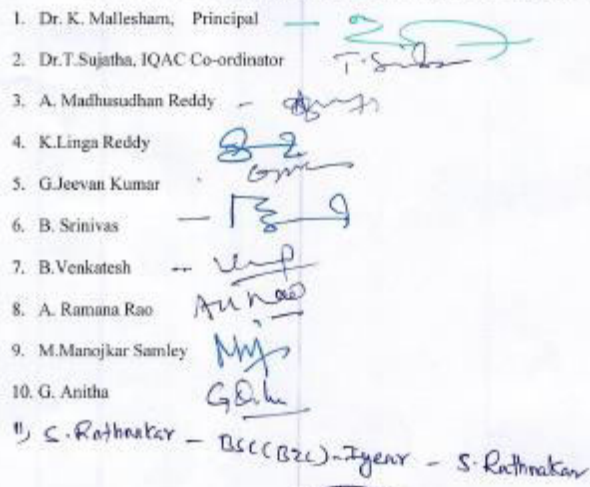 1. Dr. K. Mallesham, Principal —
2. Dr.T.Sujatha, IQAC Co-ordinator
3. A. Madhusudhan Reddy -
4. K.Linga Reddy
5. G.Jeevan Kumar
6. B. Srinivas —
7. B.Venkatesh --
8. A. Ramana Rao
9. M.Manojkar Samley
10. G. Anitha
11) S. Rathnakar - BSC(BZC)-Iyear - S. Rathnakar